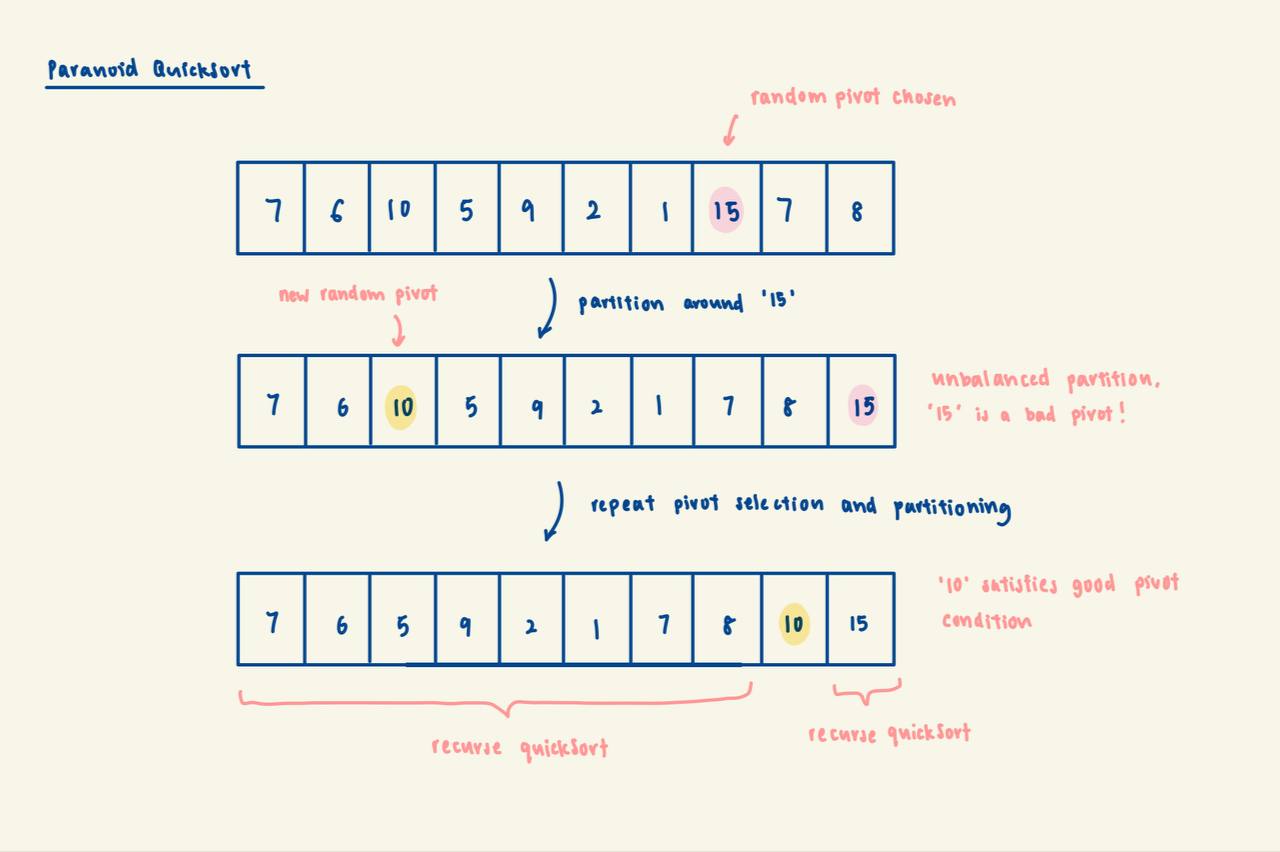 Paranoid Quicksort
random pivot chosen
7 6 10 5 9 2 1 15 7 8
new random pivot
partition around '15'
7 6 10 5 9 2 1 7 8 15
unbalanced partition,
'15' is a bad pivot!
repeat pivot selection and partitioning
7 6 5 9 2 1 7 8 10 15
'10' satisfies good pivot
condition
recurse quicksort
recurse quicksort